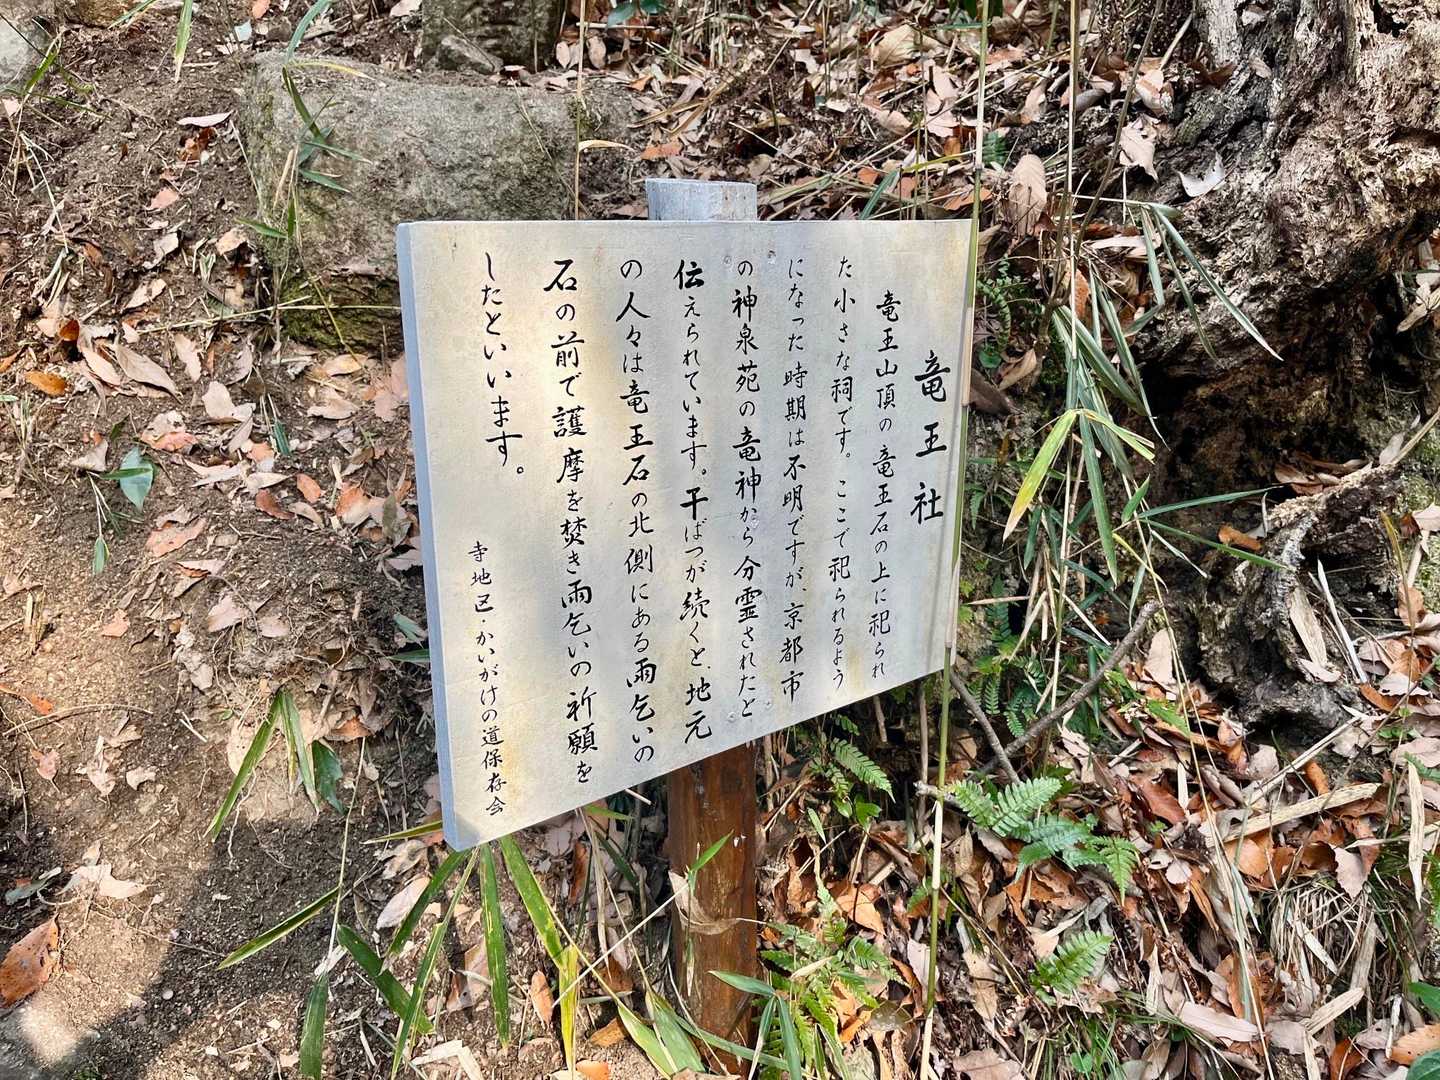 竜王社
竜王山頂の竜王石の上に祀られ
た小さな祠です。ここで祀られるよう
になった時期は不明ですが、京都市
の神泉苑の竜神から分霊されたと
伝えられています。干ばつが続くと、地元
の人々は竜王石の北側にある雨乞いの
石の前で護摩を焚き雨乞いの祈願を
したといいます。
寺地区・かいがけの道保存会